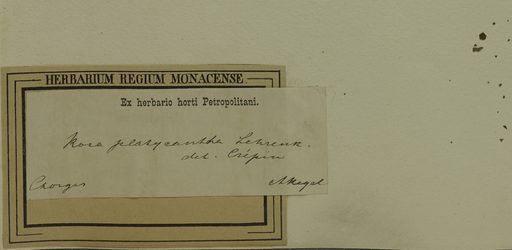 HERBARIUM REGIUM MONACENSE.
Ex herbario horti Petropolitani.
Rosa platyacantha Schrenk.
det. Crépin
Chorgos
A Regel